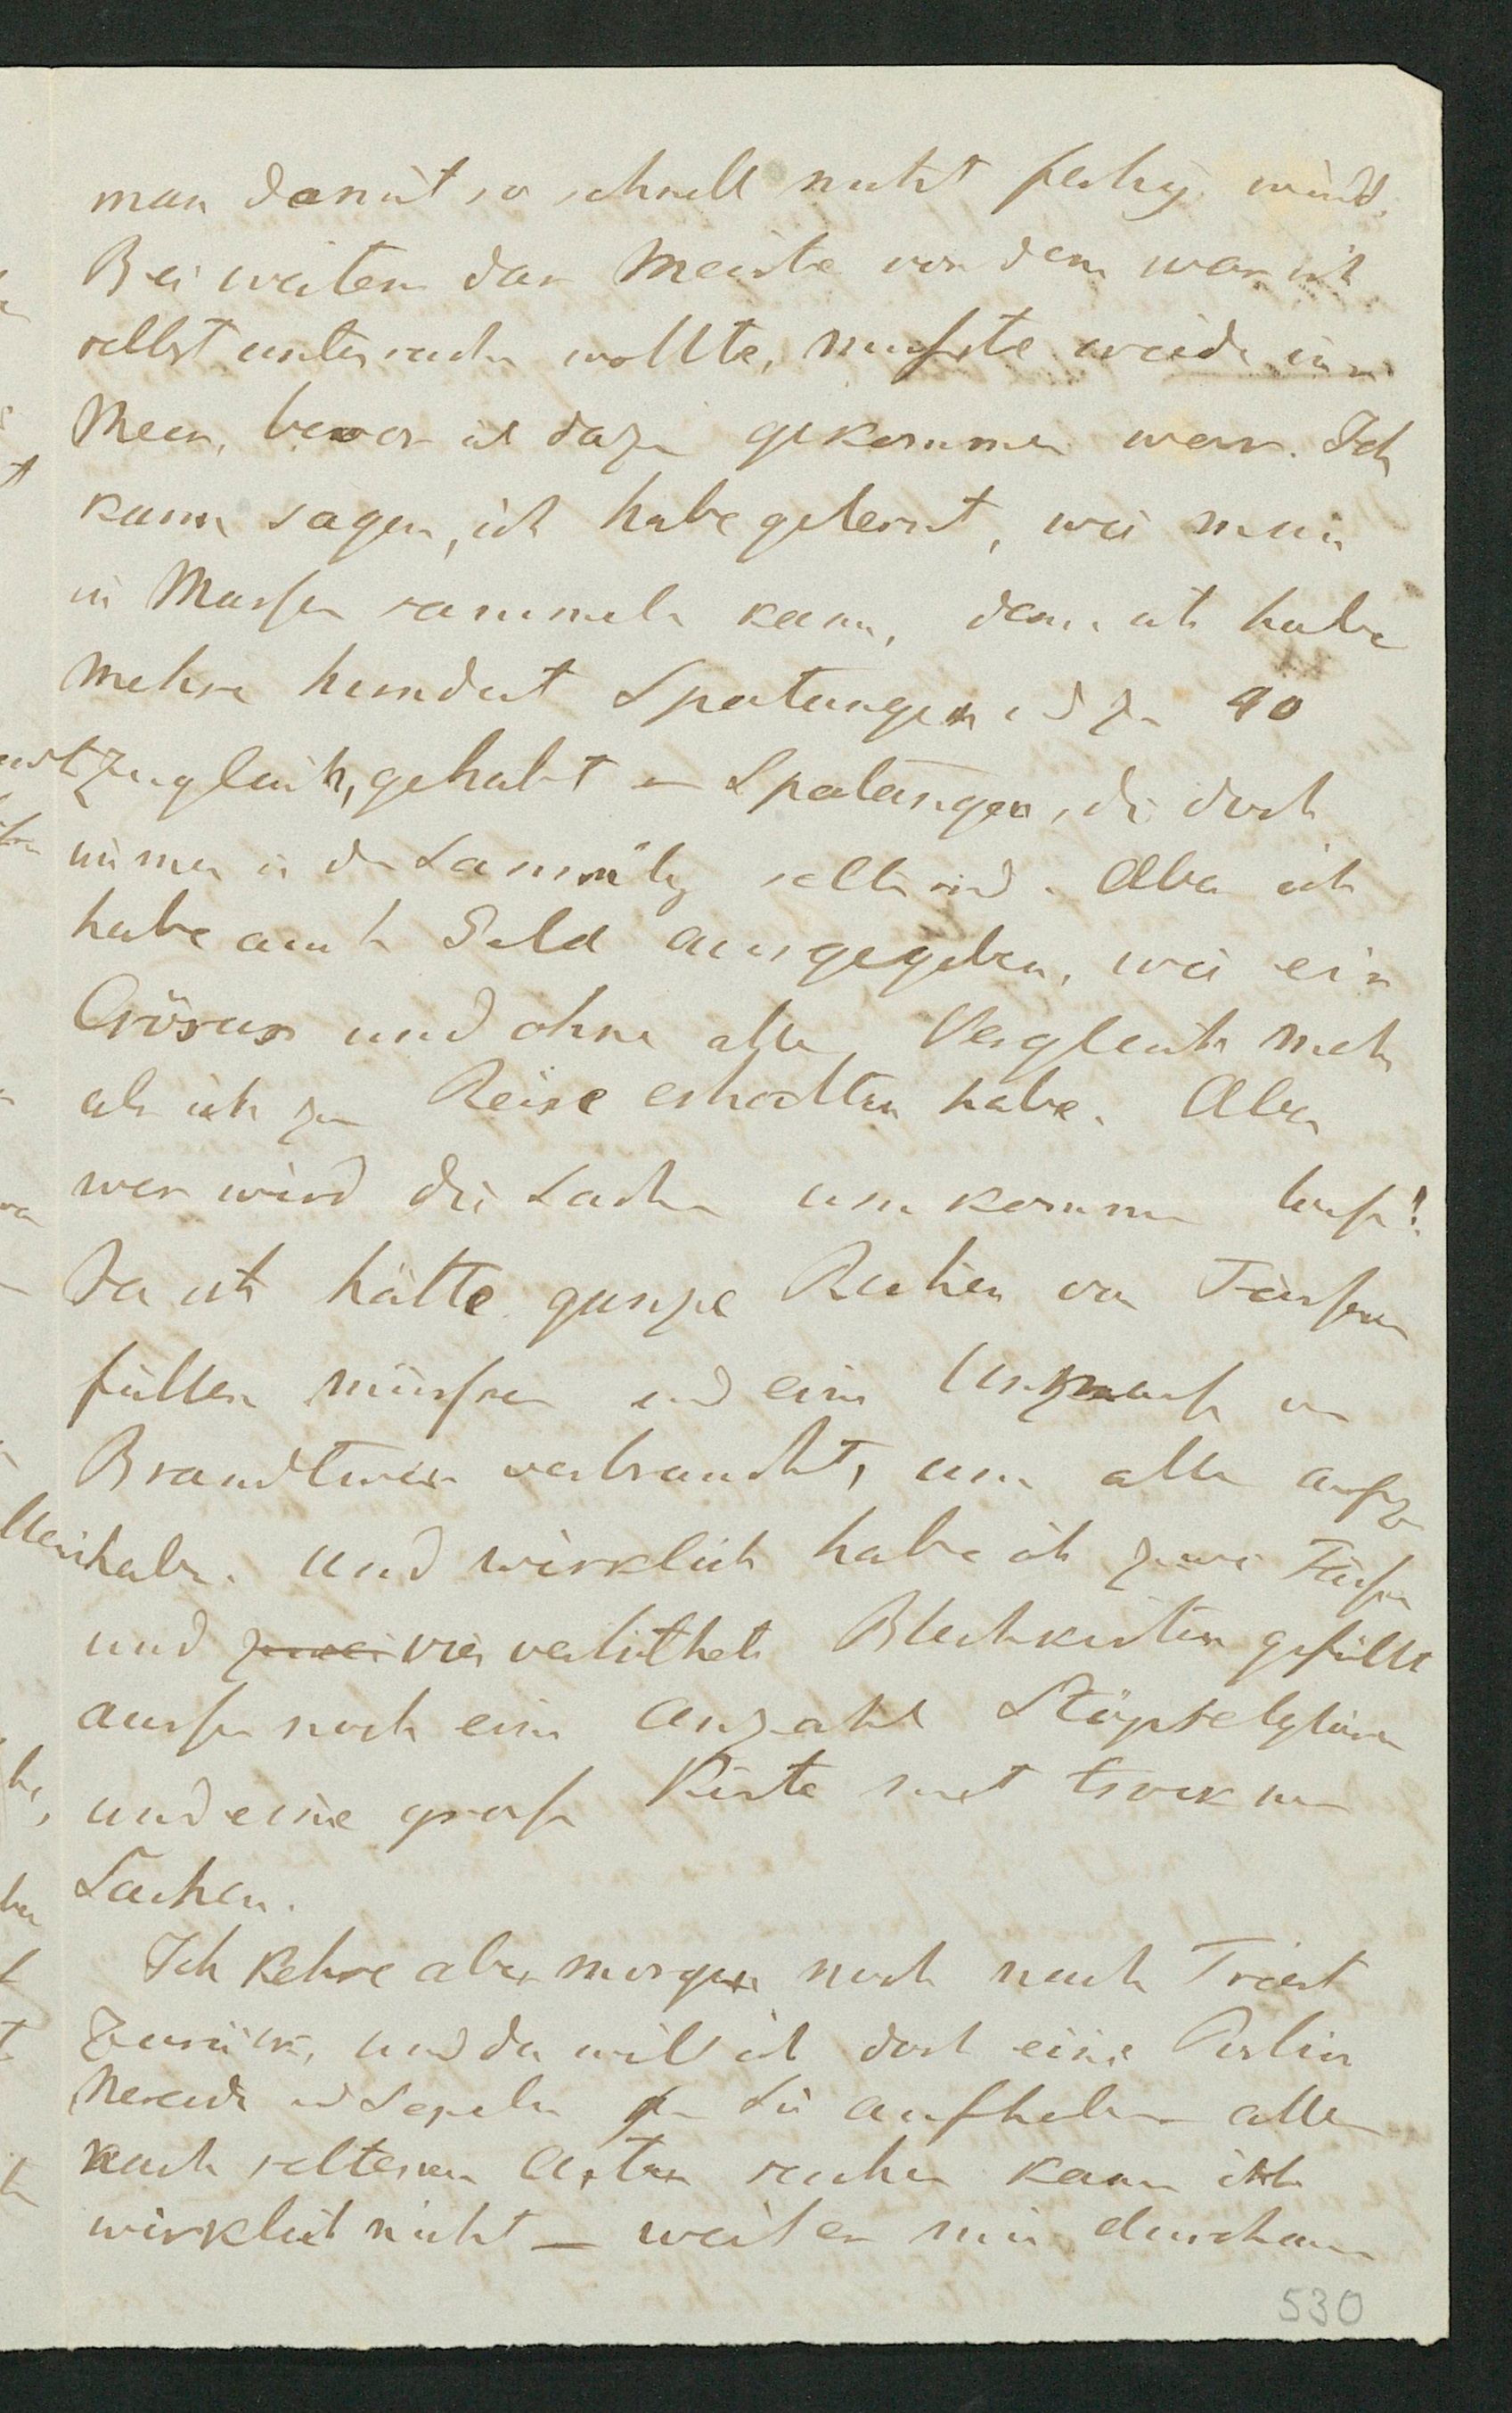 man damit so schnell nicht fertig wird.
Bei weitem das Meiste von dem was ich
selbst untersuchen wollte, mußte wieder ins
Meer, bevor ich dazu gekommen war. Ich
kann sagen, ich habe gelernt, wie man
in Massen sammeln kann, denn ich habe
mehre hundert Spatangen, und zu 40
zugleich, gehabt – Spatangen, die doch
immer in der Sammlg selten sind. Aber ich
habe auch Geld ausgegeben, wie ein
Crösus und ohne alle Vergleich mehr
als ich zur Reise erhalten habe. Aber
wer wird die Sachen umkommen lassen!
Ja ich hätte ganze Reihen von Fässern
füllen müssen und eine Unmasse von
Brandtwein verbraucht, um alles aufzu
haben. Und wirklich habe ich zwei Fässer
und zwei vier verlöthete Blechkisten gefüllt
ausser noch eine Anzahl Stöpselgläser
und eine große Kiste mit trocknen
Sachen.
Ich kehre aber morgen noch nach Triest
zurück, und da will ich dort eine Partie
Nereiden und Serpeln für Sie aufheben allen
nach seltenen Arten suchen kann ich
wirklich nicht – weil es mir durchaus
530